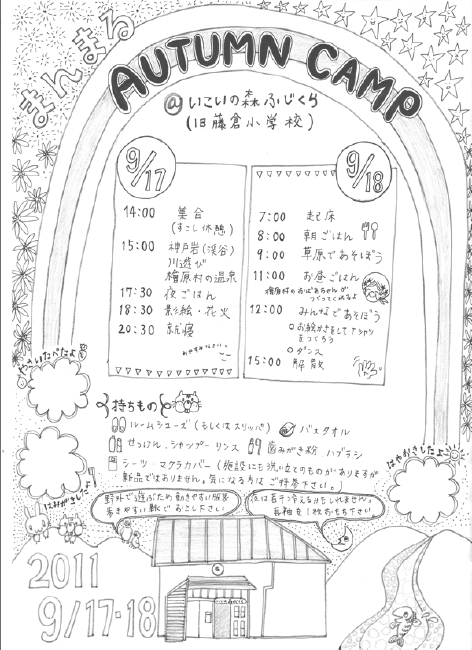 まんまる
AUTUMN CAMP
@いこいの森ふじくら
(旧藤倉小学校)
9/17
14:00 集合
(すこし休憩)
15:00 神戸岩(渓谷)
川遊び
檜原村の温泉
17:30 夜ごはん
18:30 影絵・花火
20:30 就寝
おやすみなさい
9/18
7:00 起床
8:00 朝ごはん
9:00 草原であそぼう
11:00 お昼ごはん
檜原村のおばあちゃんが
つくってくれるよ
12:00 みんなであそぼう
○お絵かきをしてTシャツ
をつくろう
○ダンス
15:00 解散
持ちもの
ルームシューズ(もしくはスリッパ) バスタオル
せっけん、シャンプー リンス 歯みがき粉 ハブラシ
シーツ・マクラカバー(施設にも洗い立てのものがありますが
新品ではありません。気になる方は ご持参下さい。)
はやおきしたよ
はみがきしたよ
野外で遊ぶため動きやすい服装
歩きやすい靴で おこし下さい
夜は若干冷えるかもしれません。
長袖を1枚おもち下さい
2011
9/17・18